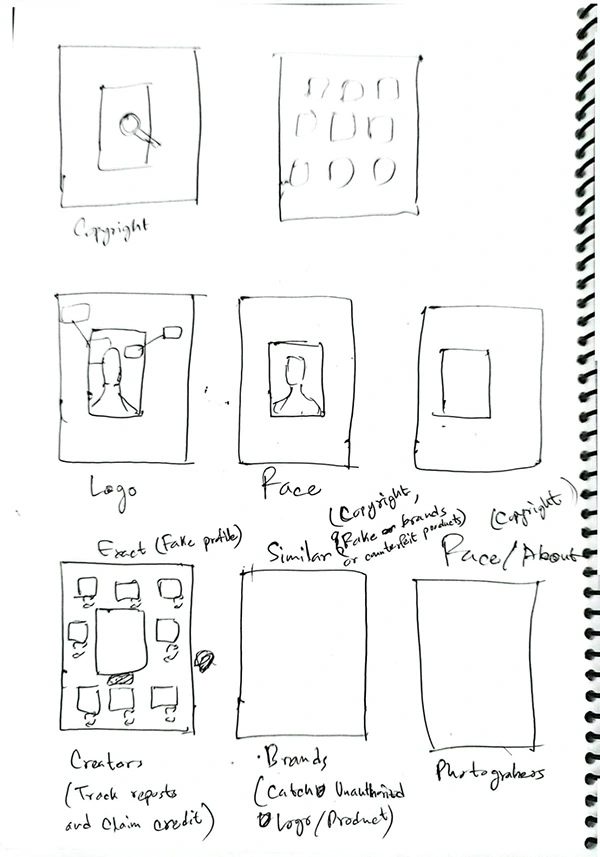 Copyright
Logo
Face
(Copyright,
Fake or brands
or counterfeit products)
(Copyright)
Exact (Fake profile)
Similar
Face/About
Creators
(Track reposts
and Claim credit)
· Brands
(Catch Unauthorized
Logo/Product)
Photograhers